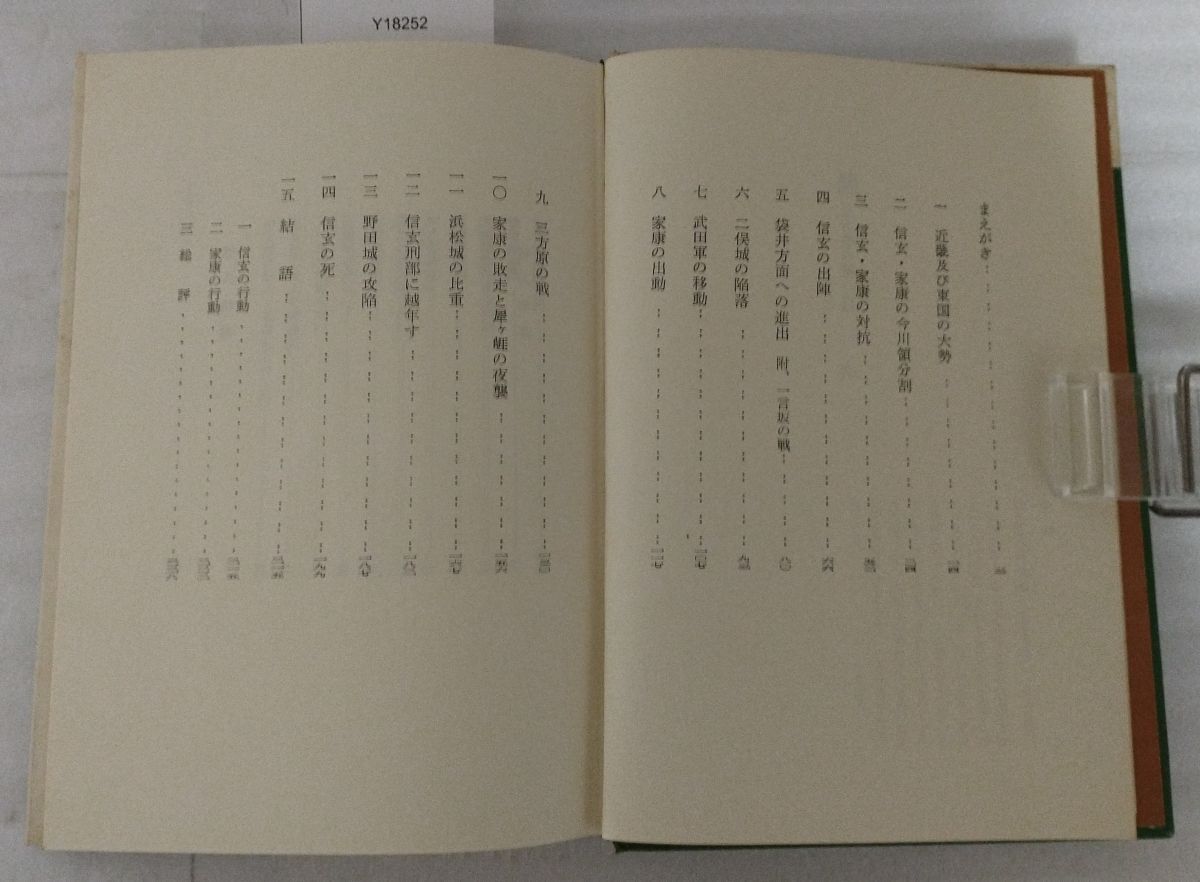 Y18252
まえがき
一 近畿及び東国の大勢
二 信玄・家康の今川領分割
三 信玄・家康の対抗
四 信玄の出陣 六六
五 袋井方面への進出 附、一言坂の戦 八〇
六 二俣城の陥落
七 武田軍の移動 一〇七
八 家康の出動
九 三方原の戦
一〇 家康の敗走と犀ヶ崕の夜襲
一一 浜松城の比重 一六七
一二 信玄刑部に越年す
一三 野田城の攻陥 一八七
一四 信玄の死 一九九
一五 結語
一 信玄の行動
二 家康の行動
三 総評